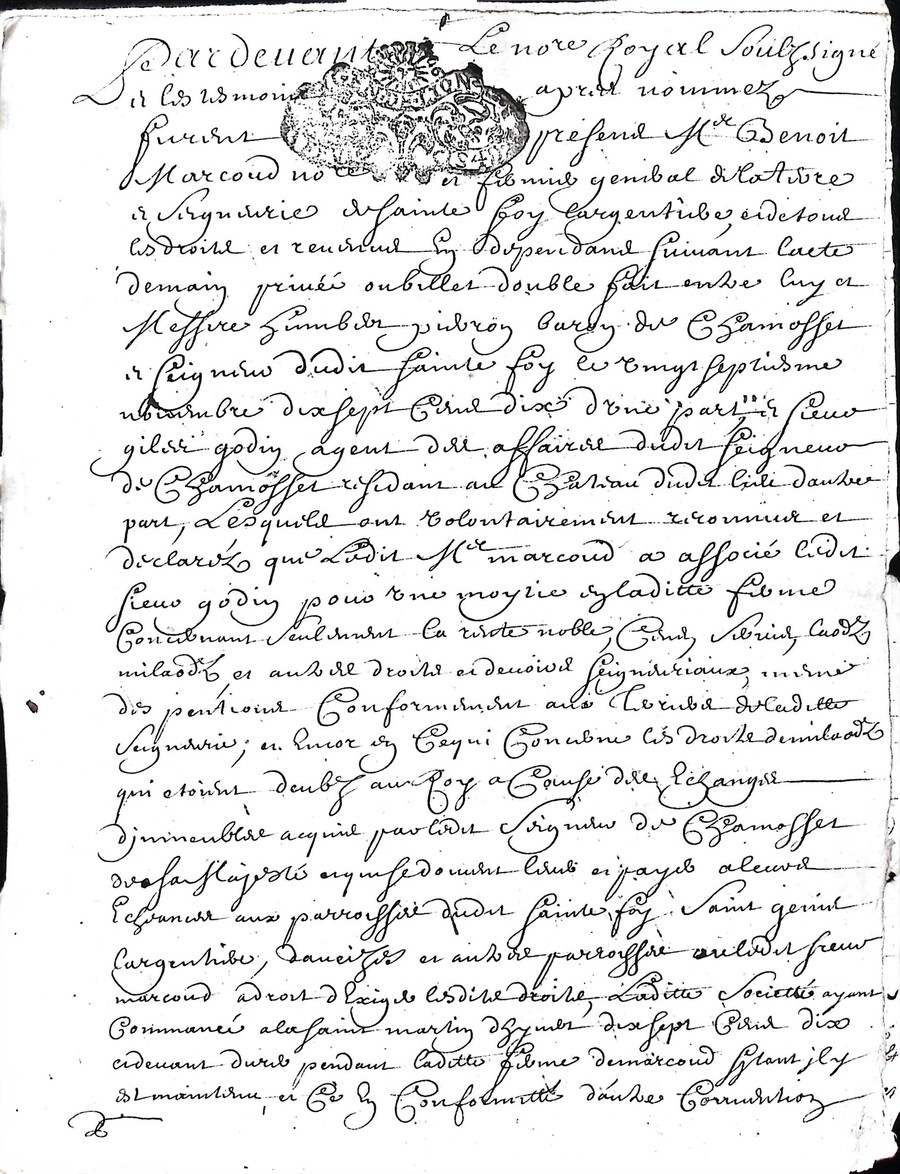 Pardevant Le nore Royal Soulzsigné
et les tesmoins apres nommez
furent présens Mer Benoit
Marcoud nore et fermier general de la terre
et Seigneurie de Sainte foy largentiere, et de tous
les droits et revenus En dependans suivant lacte
demain privée oubillet double fait entre luy et
Messire humbert pierron baron de Chamosset
et Seigneur dudit Sainte foy le vingt septiesme
novembre dix sept Cens dix d'une part, et sieur
giles godin agent des affaires dudit seigneur
de Chamosset residant au Chateau dudit lieu dautre
part, Lesquels ont volontairement reconnus et
declaréz que Ledit Mer marcoud a associé ledit
sieur godin pour une moytie en laditte ferme
Concernant seulement la rente noble, Cens, servis, laodz
milaodz, et autres droits et devoirs seigneuriaux, meme
des pentions Conformement aux Terriers de laditte
Seigneurie; et Encor en Cequi Concerne les droits demilaodz
qui etoient deubz au Roy a Cause des Echanges
d'jmmeubles acquis par ledit Seigneur de Chamosset
de sa Majesté et qui se doivent lever et payer a leurs
Echeances aux parroisses dudit Sainte foy Saint genis
largentiere, et autres parroisses ou ledit sieur
marcoud a droit d'Exiger lesdits droits, Laditte Societté ayant
Commancé a la saint martin d'hyvert dix sept Cens dix
et devant durer pendant laditte ferme de marcoud sy tant jl y
est maintenu, et Ce En Conformitté dautre Convention